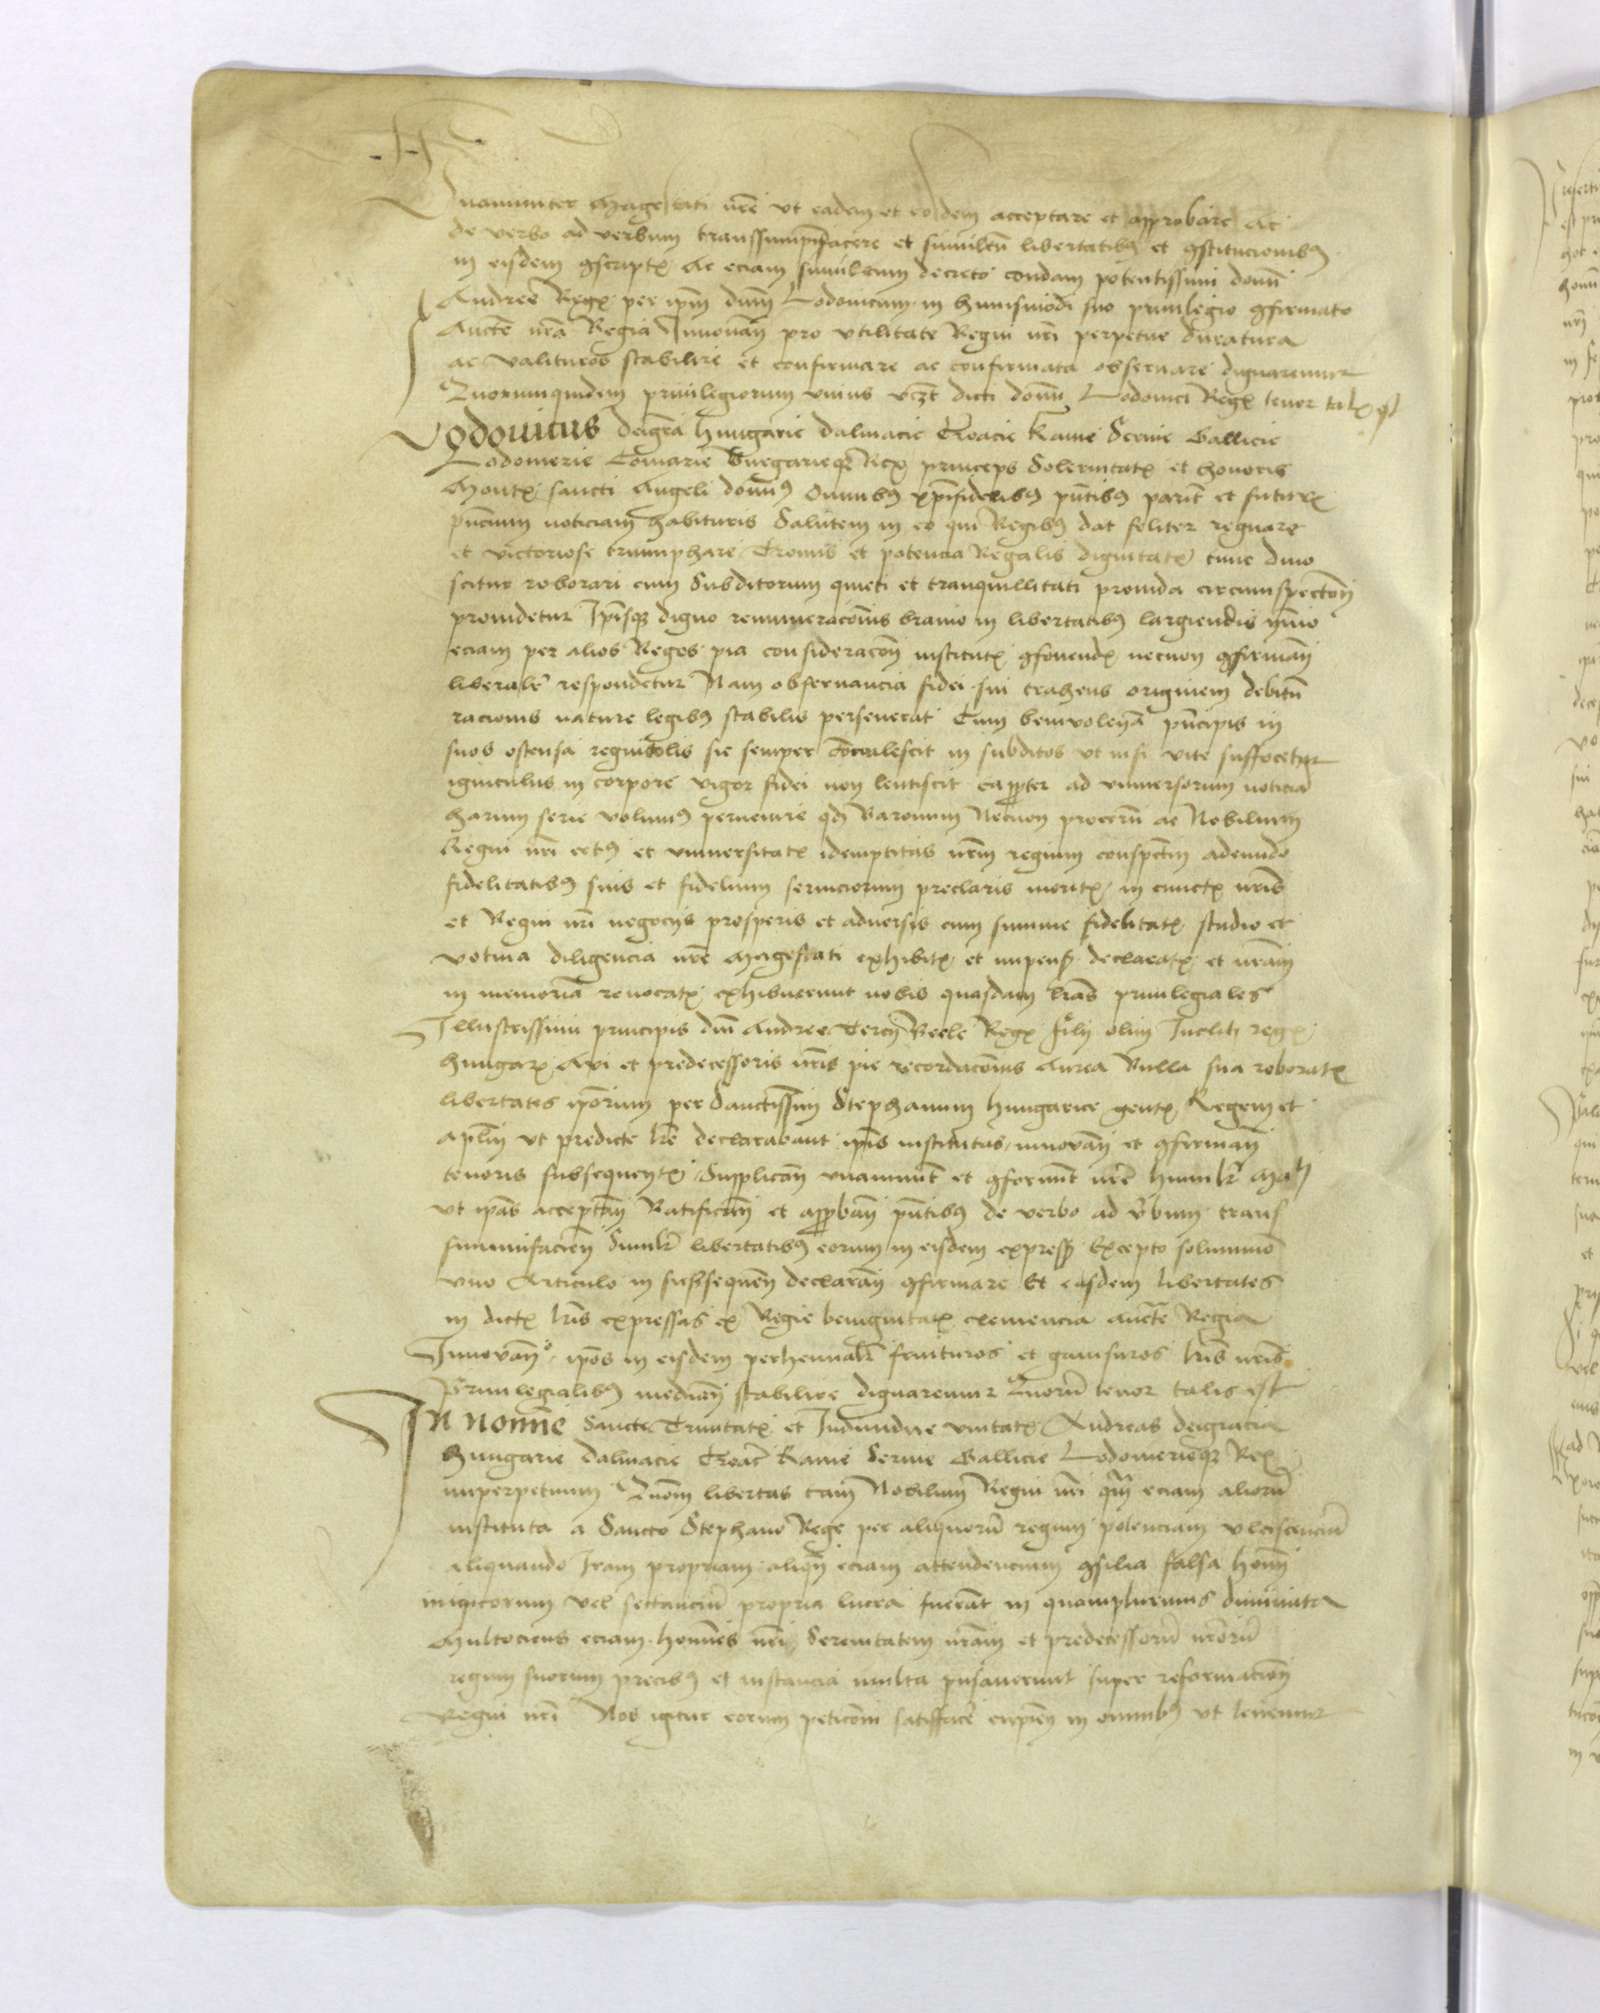 Vnanimiter Magestati nr̄e vt eadem et eodem acceptare et approbare Ac
de verbo ad verbum transsumpmfacere et simulcū libertatibꝰ et ꝯstitucionibꝰ
in eisdem ꝯscriptꝭ Ac eciam simulcum decreto condam potentissimi domī
Andree Regꝭ per ipm̄ dnm̄ Lodouicum in huiusmodi suo priuilegio ꝯfirmato
Aucte nr̄a Regia Innouan̄ pro vtilitate Regni nr̄i perpetue duratura
ac valituros stabilire et confirmare ac confirmata obseruare dignaremur
Quorumquidem priuilegiorum vnius vcꝫt dicti domī Lodouici Regꝭ tenor talꝭ est
Lodouicus deigr̄a Hungarie Dalmacie Croacie Rame Seruie Gallicie
Lodomerie Comarie Bulgarieqꝫ Rex princeps Solernitatꝭ et honoris
Montꝭ sancti Angeli domīꝰ Omnibꝰ xp̄ifidelibꝰ pn̄tibꝰ parit̄ et futurꝭ
pn̄cium noticiam habituris Salutem in eo qui Regibꝰ dat feliter regnare
et victoriose triumphare Tronus et potencia Regalis dignitatꝭ tunc diuo
scitur roborari cum Subditorum quieti et tranquillitati prouida circumspectōn̄
prouidetur Ip̄isqꝫ digno remuneracōnis brauio in libertatibꝰ largiendis ymmo
eciam per alios Reges pia consideracōn̄ institutꝭ ꝯfouendꝭ necnon ꝯfirman̄
liberalr̄ respondetur Nam obseruancia fidei sui trahens originem debitū
racionis nature legibꝰ stabilis perseuerat Cum beniuolen̄a prīcipis in
suos ostensa regnicolis sic semper coalescit in subditos vt nisi vite suffocetur
igniculus in corpore vigor fidei non lentiscit eapp̄ter ad vniuersorum noticiā
harum serie volumꝰ peruenire qd̄ Baronum Necnon procerū ac Nobilium
Regni nr̄i cetꝰ et vniuersitatꝭ idemptitas nr̄m regium conspectū adeundo
fidelitatibꝰ suis et fidelium seruiciorum preclaris meritꝭ in cunctꝭ nr̄is
et Regni nr̄i negocijs prosperis et aduersis cum summe fidelitatꝭ studio et
votiua diligencia nr̄e Magestati exhibitꝭ et impensꝭ declaratꝭ et nr̄am
in memoriā reuocatꝭ exhibuerunt nobis quasdam lr̄as priuilegiales
Illustrissimi principis dn̄i Andree Tercij Beele Regꝭ filij olim Incliti regꝭ
Hungarꝭ Aui et predecessoris nr̄i pie recordacōnis Aurea Bulla sua roboratꝭ
libertates ip̄orum per Sanctissim̄ Stephanum Hungarice gentꝭ Regem et
apl̄m vt predicte lr̄e declarabant ip̄is institutas innouan̄ et ꝯfirman̄
tenoris subsequentꝭ Supplican̄ vnanimit̄ et ꝯformit̄ nr̄e humilr̄ Maḡ
vt ip̄as acceptan̄ Ratifican̄ et approban̄ pn̄tibꝰ de verbo ad v̄bum trans
summifacien̄ Simulr̄ libertatibꝰ eorum in eisdem expressꝭ Excepto solummō
vno Articulo in subsequen̄ declaran̄ ꝯfirmare Et easdem libertates
in dictꝭ lr̄is expressas ex Regie benignitatꝭ clemencia aucte Regia
Innouan̄ ip̄os in eisdem perhennalr̄ fruituros et gauisuros lr̄is nr̄is
Priuilegialibꝰ median̄ stabilire dignaremur Quarū tenor talis est
In nomīe Sancte Trinitatꝭ et Indiuidue vnitatꝭ Andreas deigracia
Hungarie Dalmacie Croac̄ Rame Seruie Gallicie Lodomerieqꝫ Rex
imperpetuum Quōm libertas tam Nobilium Regni nr̄i qm̄ eciam aliorū
instituta a Sancto Stephano Rege per aliquorū regum potenciam vlciscenciū
aliquando Iram propriam aliqn̄ eciam attendencium ꝯsilia falsa hoīm
iniqorum vel sectanciū propria lucra fuerāt in quamplurimis diminuta
Multociens eciam homines nr̄i Serenitatem nr̄am et predecessorū nr̄orū
regum suorum precibꝰ et instancia multa pulsauerunt super reformacion̄
Regni nr̄i Nos igitur eorum peticōni satisfacē cupien̄ in omnibꝰ vt tenemur